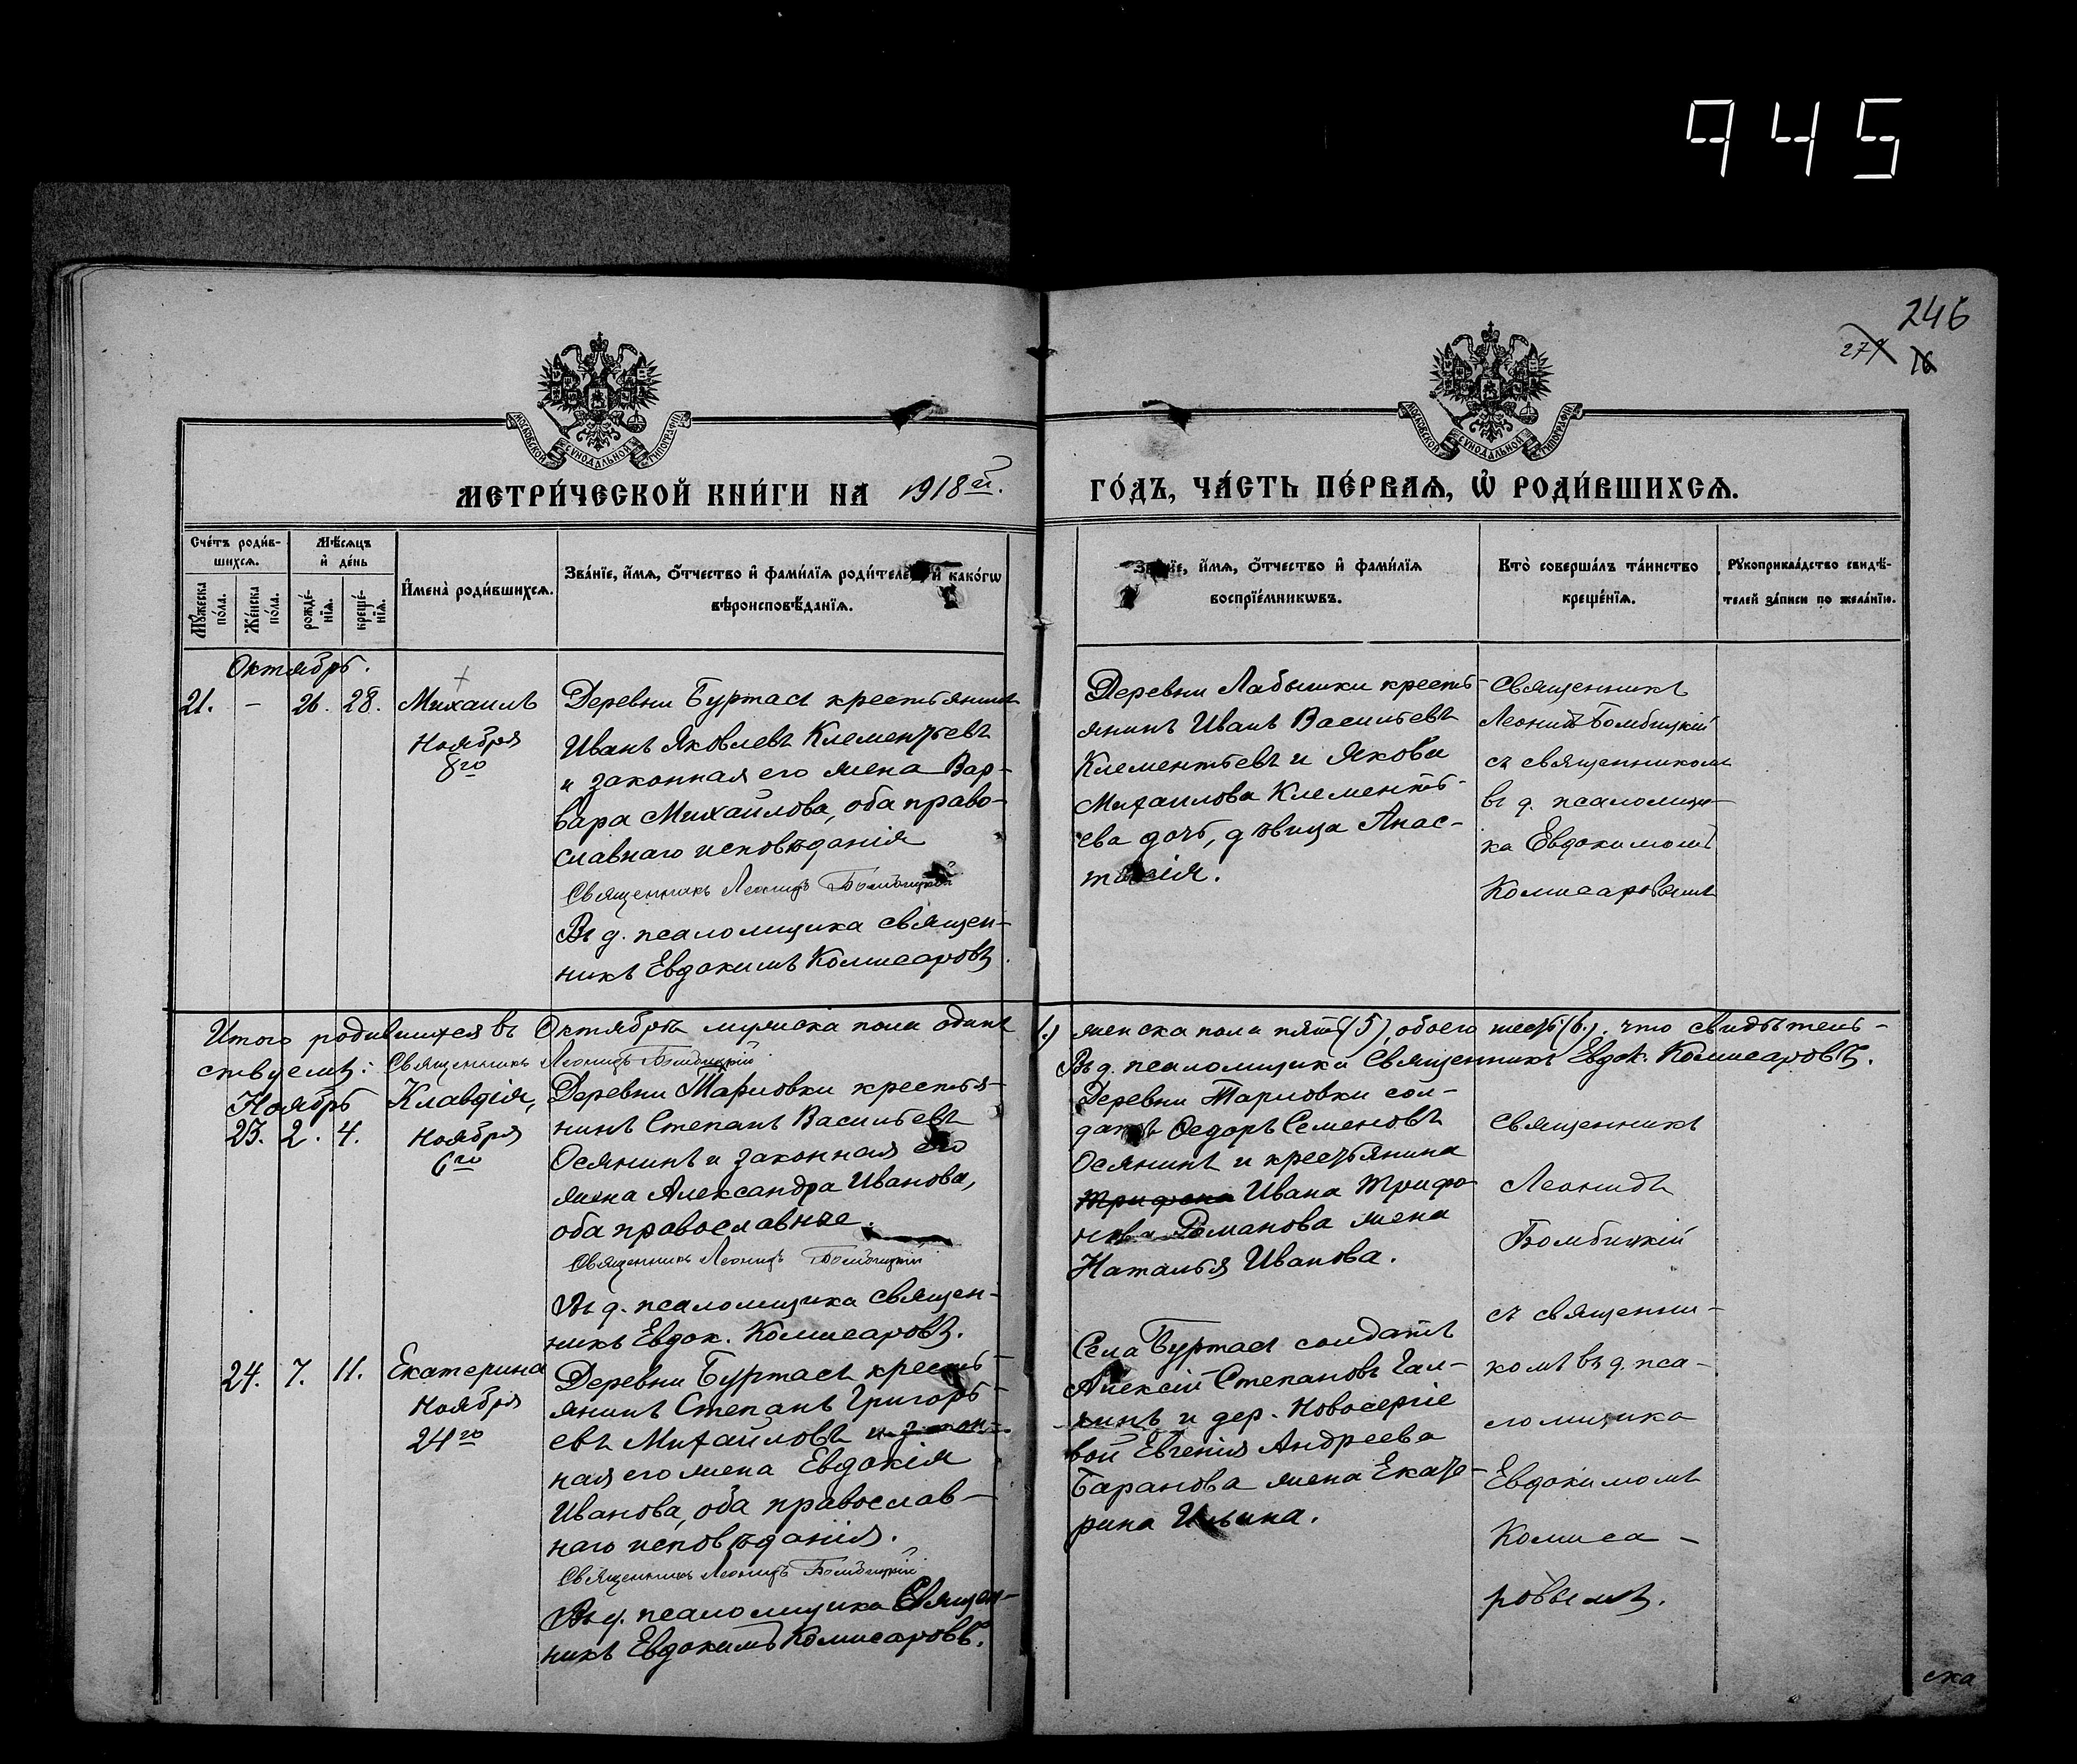 945
246
279 16
МОСКОВСКОЙ СУНОДАЛЬНОЙ ТИПОГРАФІИ
МОСКОВСКОЙ СУНОДАЛЬНОЙ ТИПОГРАФІИ
МЕТРИ́ЧЕСКОЙ КНИ́ГИ НА 1918й.
ГО́ДЪ, ЧА́СТЬ ПЕ́РВАѦ, Ѡ҆ РОДИ́ВШИХСѦ.
Сче́тъ роди́в-
шихсѧ.
Мѣ́сѧцъ
и҆ де́нь
Мꙋ́жеска по́ла.
Же́нска по́ла.
рожде́-
нїѧ.
креще́-
нїѧ.
И҆мена̀ роди́вшихсѧ.
Зва́нїе, и҆́мѧ, ѻ҆́тчество и҆ фами́лїѧ роди́телей, и҆ како́гѡ
вѣроисповѣ́данїѧ.
Зва́нїе, и҆́мѧ, ѻ҆́тчество и҆ фами́лїѧ
воспрїе́мникѡвъ.
Кто̀ соверша́лъ та́инство
креще́нїѧ.
Рꙋкоприкла́дство свидѣ́-
телей за́писи по жела́нїю.
Октябрь.
21. – 26. 28.
Михаилъ
Ноября
8го
Деревни Буртасъ крестьянинъ
Иванъ Яковлевъ Клементьевъ
и законная его жена Вар-
вара Михайлова, оба право-
славнаго исповѣданія
Священникъ Леонидъ Бомбицкій
Въ д. псаломщика священ-
никъ Евдокимъ Комисаровъ.
Деревни Лабышки кресть-
янинъ Иванъ Васильевъ
Клементьевъ и Якова
Михаилова Клементь-
ева дочь, дѣвица Анас-
тасія.
Священникъ
Леонидъ Бомбицкій
съ священникомъ
въ д. псаломщи-
ка Евдокимомъ
Комисаровымъ
Итого родившихся въ Октябрѣ мужска пола одинъ (1.) женска пола пять (5), обоего шесть (6.). что свидѣтель-
ствуемъ: Священникъ Леонидъ Бомбицкій Въ д. псаломщика Священникъ Евдок. Комисаровъ.
Ноябрь
23. 2. 4.
Клавдія,
Ноября
6го
Деревни Тарловки крестья-
нинъ Степанъ Васильевъ
Осянинъ и законная его
жена Александра Иванова,
оба православные.
Священникъ Леонидъ Бомбицкій
Въ д. псаломщика священ-
никъ Евдок. Комисаровъ.
Деревни Тарловки сол-
датъ Ѳедоръ Семеновъ
Осянинъ и крестьянина
Трифона Ивана Трифо-
нова Романова жена
Наталья Иванова.
Священникъ
Леонидъ
Бомбицкій
съ священни-
комъ въ д. пса-
ломщика
Евдокимомъ
Комиса-
ровымъ.
24. 7. 11.
Екатерина
Ноября
24го
Деревни Буртасъ кресть-
янинъ Степанъ Григорь-
евъ Михайловъ и закон-
ная его жена Евдокія
Иванова, оба православ-
наго исповѣданія.
Священникъ Леонидъ Бомбицкій
Въ д. псаломщика Священ-
никъ Евдокимъ Комисаровъ.
Села Буртасъ солдатъ
Алексій Степановъ Гал-
кинъ и дер. Новосергіе
вой Евгенія Андреева
Баранова жена Екате-
рина Ильина.
ска